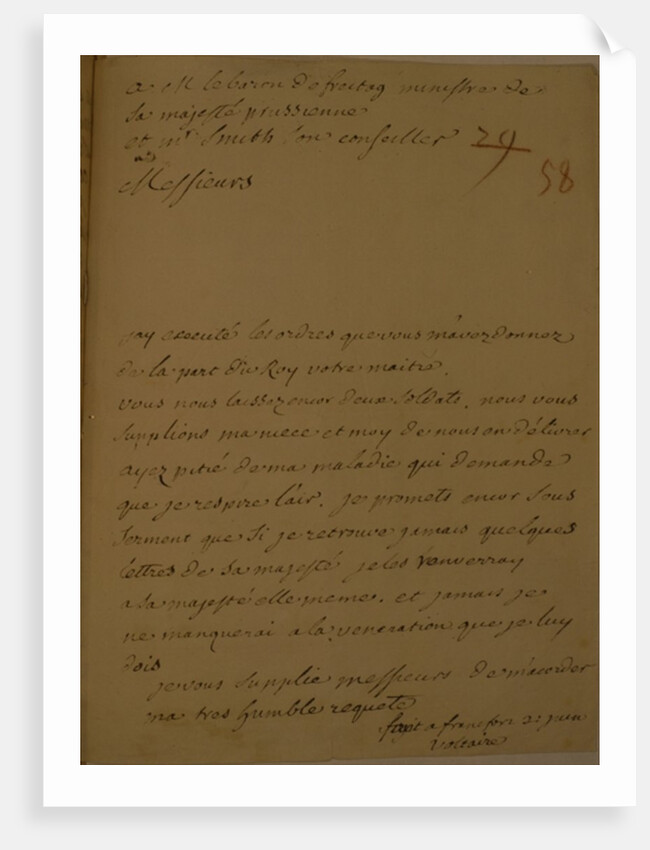 a M le baron de freitag ministre de
sa majesté prussienne
et mr Smith son conseiller
29
58
Messieurs
jay executé les ordres que vous m'avez donnez
de la part du Roy votre maitre.
vous nous laissez encor deux soldats. nous vous
supplions ma niece et moy de nous en délivrer
ayez pitié de ma maladie qui demande
que je respire l'air. je promets encor sous
serment que si je retrouve jamais quelques
lettres de sa majesté je les renverray
a sa majesté elle meme. et jamais je
ne manquerai a la veneration que je luy
dois
je vous supplie messieurs de m'acorder
ma tres humble requete
fait a francfort 21 juin
Voltaire